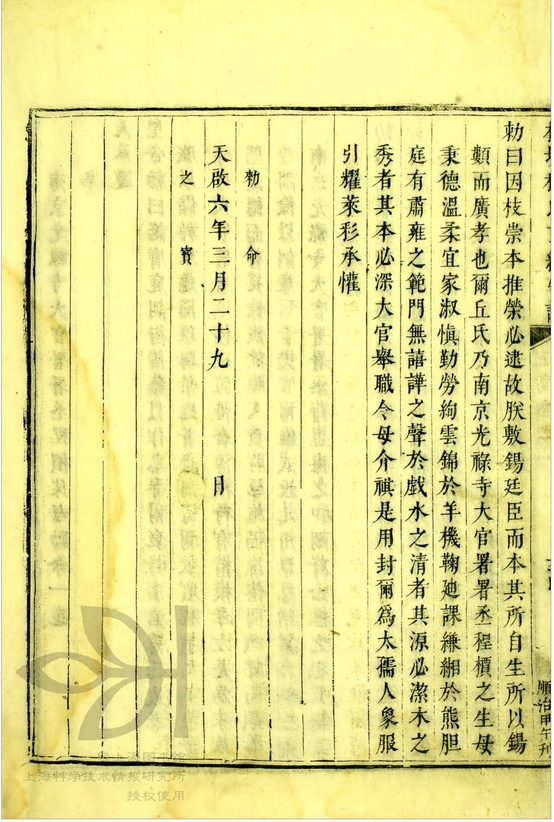 勅曰因枝崇本推榮必逮故朕敷錫廷臣而本其所自生所以錫
類而廣孝也爾丘氏乃南京光祿寺大官署署丞程檟之生母
秉德溫柔宜家淑慎勤勞絢雲錦於羊機鞠廸課縑緗於熊胆
庭有肅雍之範門無譆譁之聲於戯水之清者其源必潔木之
秀者其本必深大官舉職令母介祺是用封爾爲太孺人象服
引耀萊彩承懽
勅命
天啟六年三月二十九日
之寶
順治甲午刊
上海圖書館
上海科学技术情报研究所
授权使用